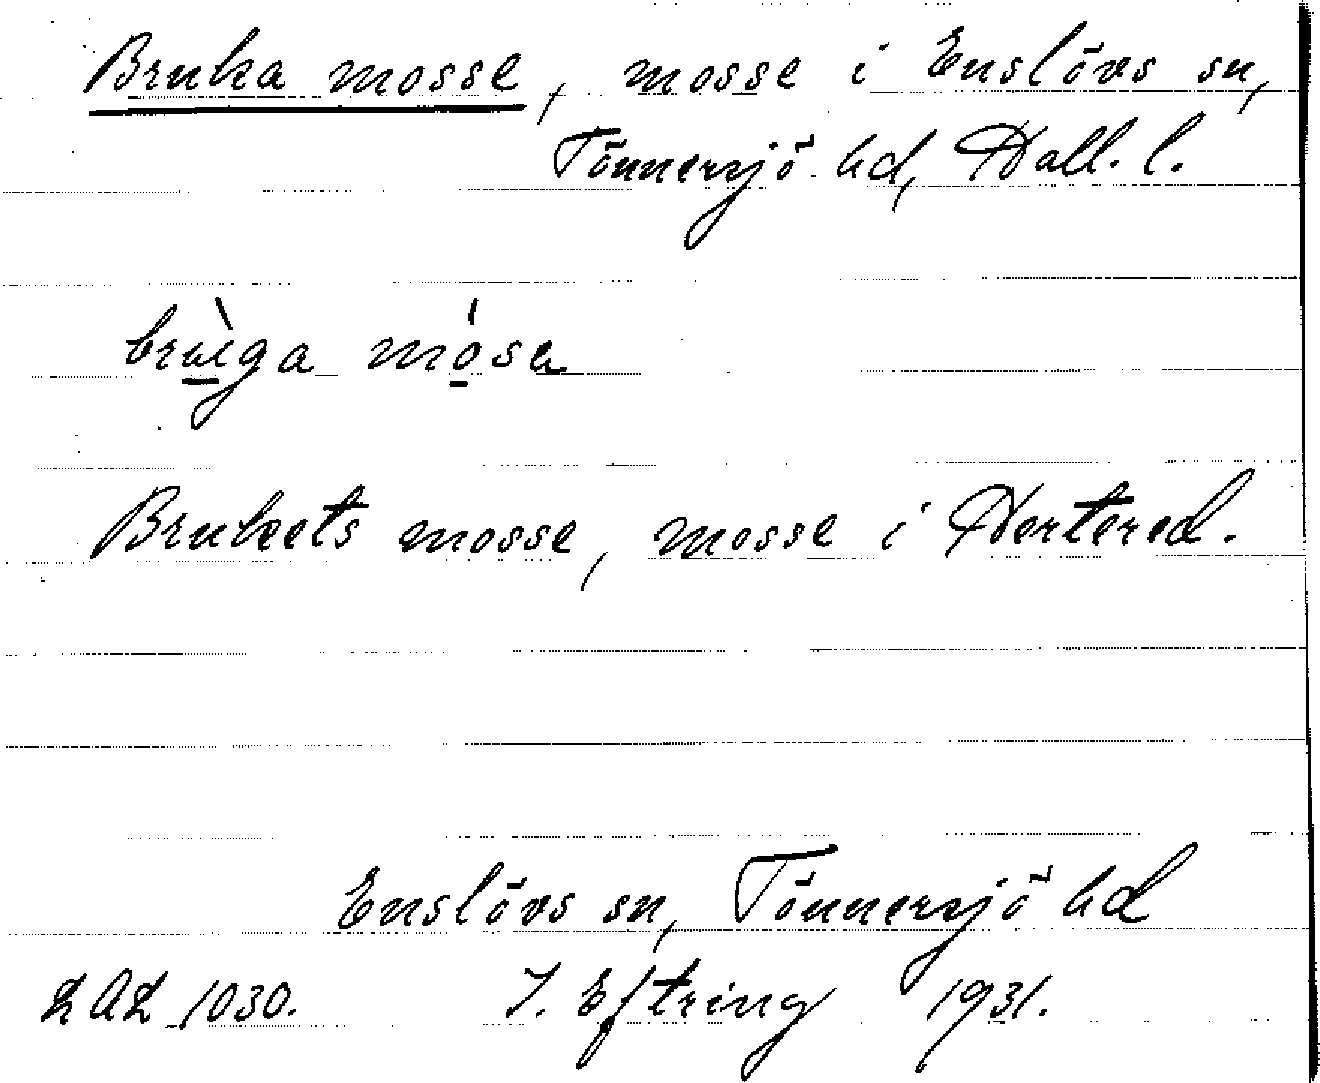 Bruka mosse, mosse i Enslövs sn,
Tönnersjö hd, Hall. l.
bruìga mósa
Brukets mosse, mosse i Hertered.
Enslövs sn, Tönnersjö hd
LAL 1030. J. Eftring 1931.